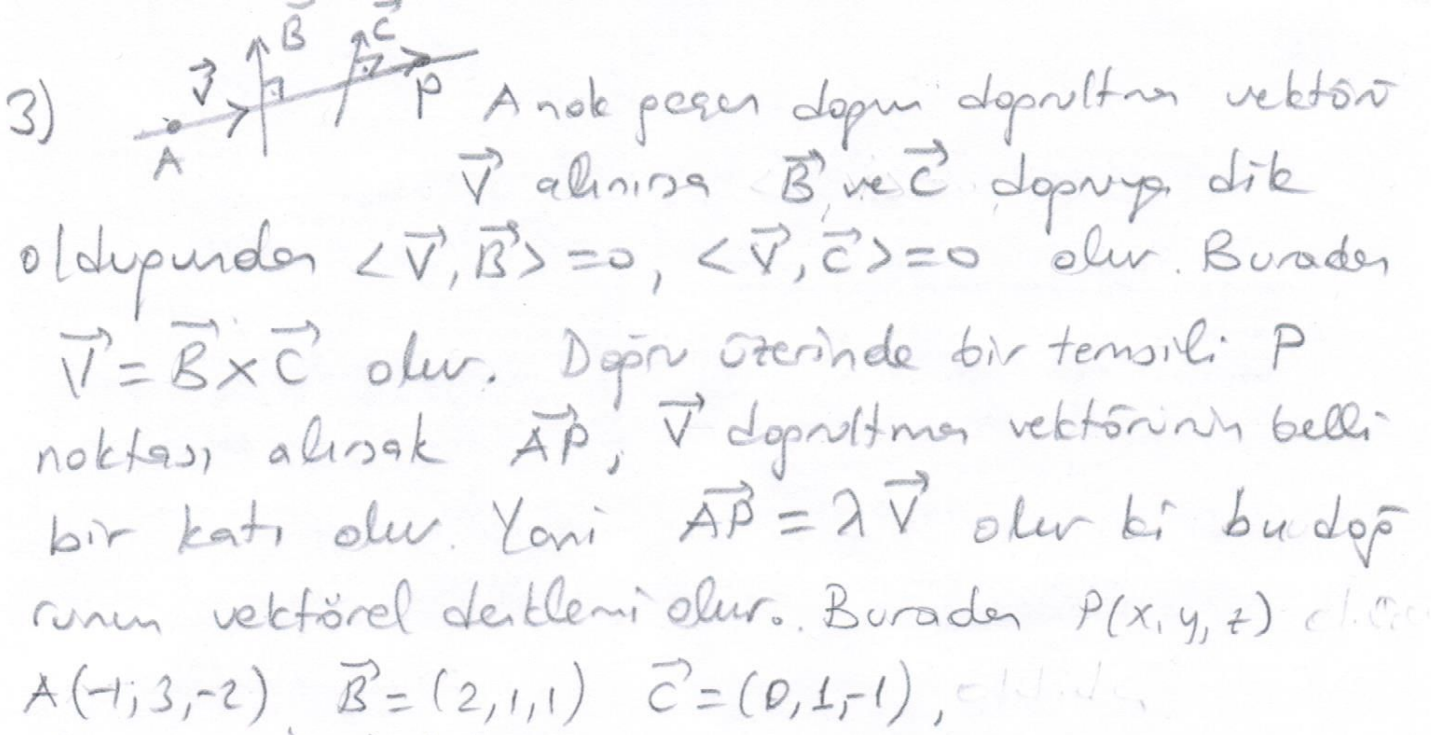 B⃗ C⃗
3) V⃗ A P A nok geçen doğru doğrultma vektörü
V⃗ alınırsa B⃗ ve C⃗ doğruya dik
olduğundan <V⃗, B⃗> = 0, <V⃗, C⃗> = 0 olur. Buradan
V⃗ = B⃗ x C⃗ olur. Doğru üzerinde bir temsili P
noktası alırsak AP⃗, V⃗ doğrultman vektörünün belli
bir katı olur. Yani AP⃗ = λ V⃗ olur ki bu doğ
runun vektörel denklemi olur. Buradan P(x, y, z)
A(-1, 3, -2) B⃗ = (2, 1, 1) C⃗ = (0, 1, -1),